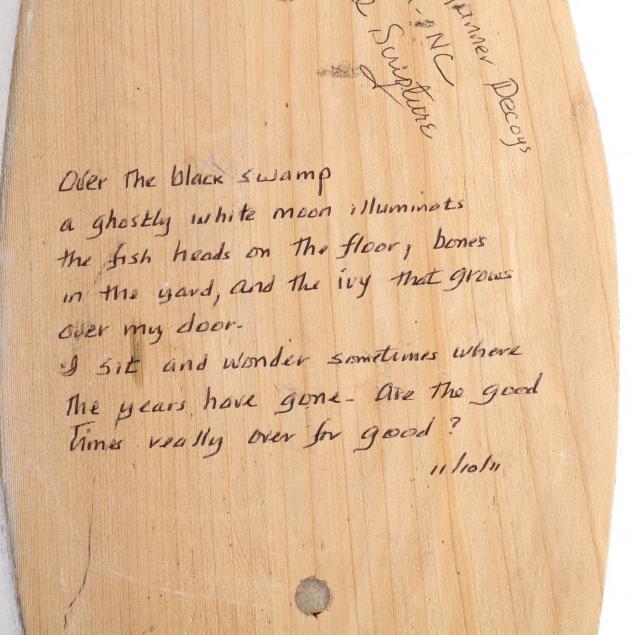 Decoys
NC
Scripture
Over The black swamp
a ghostly white moon illuminats
the fish heads on The floor, bones
in the yard, and the ivy that grows
over my door.
I sit and wonder sometimes where
The years have gone- Are The good
Times really over for good?
11/10/11